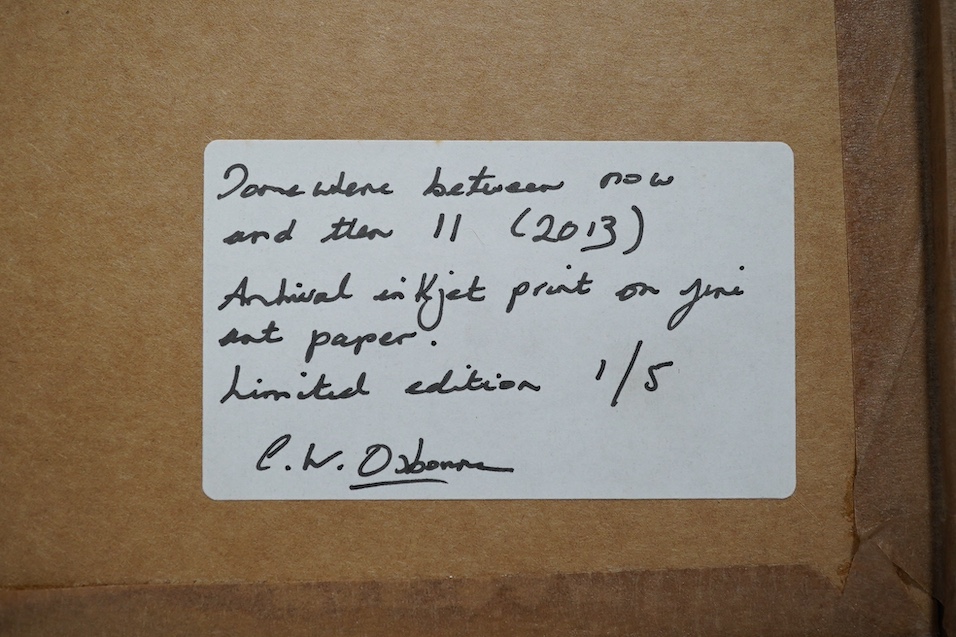 Somewhere between now
and then 11 (2013)
Archival inkjet print on fine
art paper.
Limited edition 1/5
C.W. Osborne